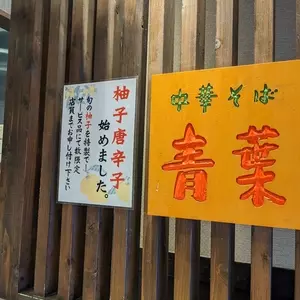 柚子唐辛子
始めました。
旬の柚子を特製でし
サービス品にて数限定
店員までお申し付け下さい
中華そば
青葉